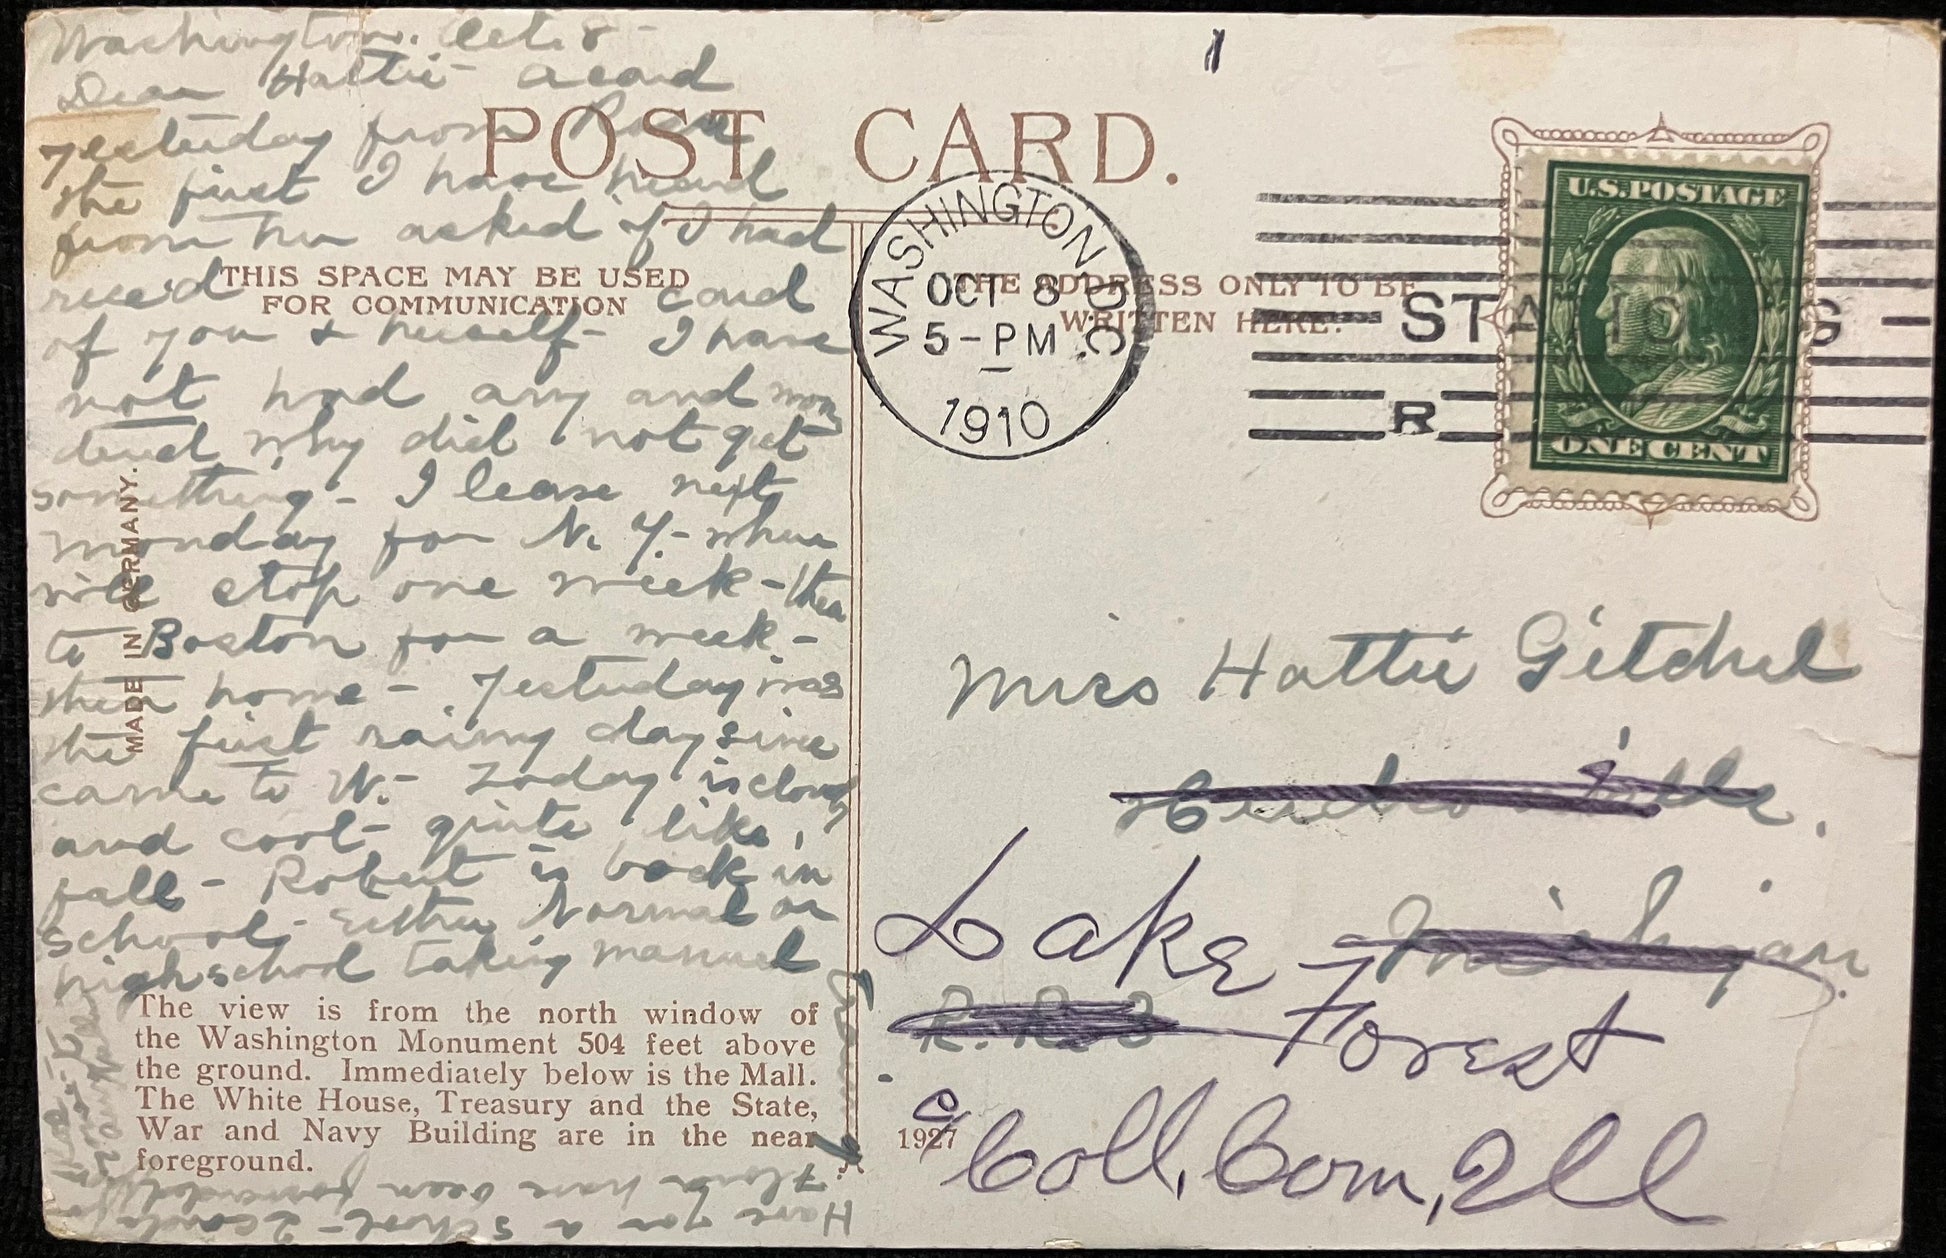 Washington. Oct. 8 -
Dear Hattie - a card
yesterday from Rosa
the first I have heard
from her asked if I had
rece'd card
of you & herself - I have
not had any and won
dered why did not get
something - I leave next
monday for N. Y. - where
will stop one week - then
to Boston for a week -
then home - Yesterday was
the first rainy day since
came to W. - Today is cloudy
and cool - quite like
fall - Robert is back in
school - Either Normal or
high school taking manual
Have you a school - 2 cards
Flora have been
POST CARD.
THIS SPACE MAY BE USED
FOR COMMUNICATION
THE ADDRESS ONLY TO BE
WRITTEN HERE.
MADE IN GERMANY.
The view is from the north window of
the Washington Monument 504 feet above
the ground. Immediately below is the Mall.
The White House, Treasury and the State,
War and Navy Building are in the near
foreground.
1927
WASHINGTON, D.C.
OCT 8
5-PM
1910
R
U.S. POSTAGE
ONE CENT
Miss Hattie Getchel
Michigan.
R. R. 3
Lake Forest
c/o Coll, Com, Ill